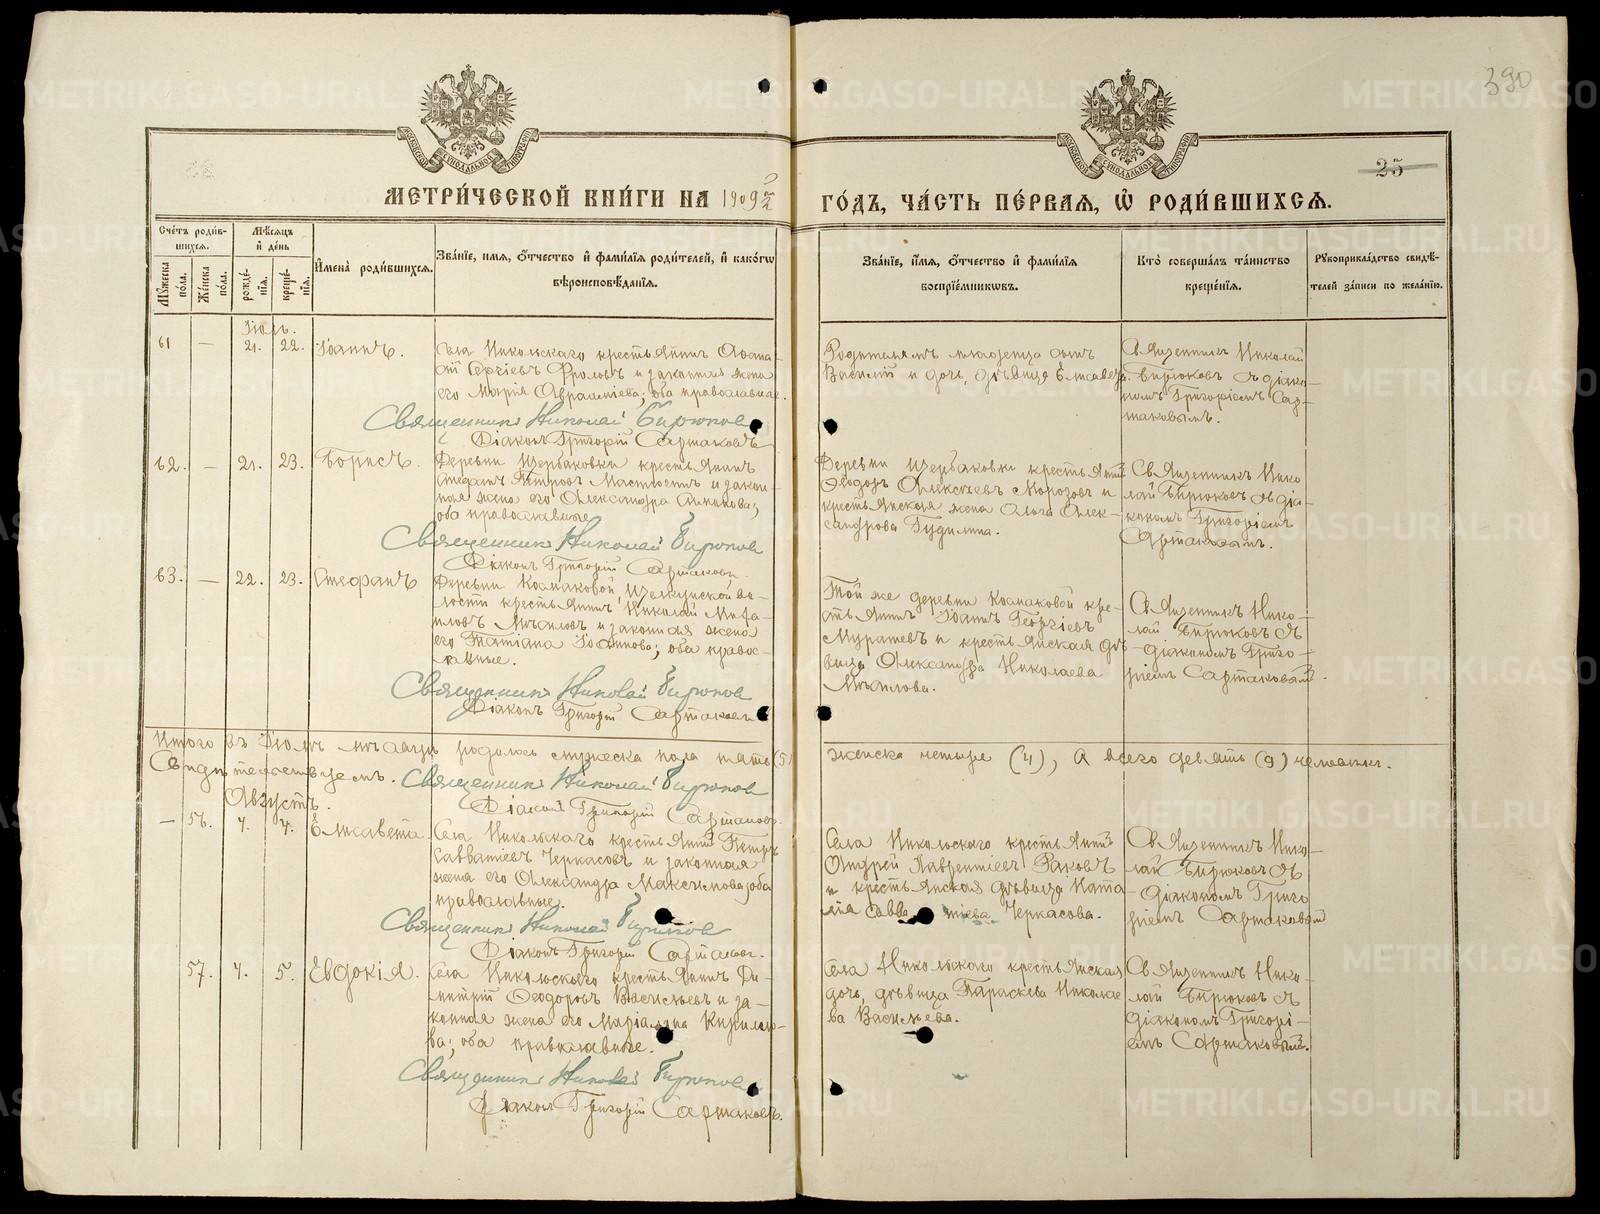 390
25
МЕТРИ́ЧЕСКОЙ КНИ́ГИ НА 1909 й
ГО́ДЪ, ЧА́СТЬ ПЕ́РВАЯ, Ѽ РОДИ́ВШИХСЯ.
Сче́тъ роди́в-
шихся.
Мѣ́сяцъ
и҆ де́нь
Му́жеска по́ла.
Же́нска по́ла.
рожде́-
нїя.
креще́-
нїя.
И҆мена̀ роди́вшихся.
Зва́нїе, имя, о҆́тчество и҆ фами́лїя роди́телей, и҆ како́гѡ
вѣроисповѣ́данїя.
Зва́нїе, и҆́мя, о҆́тчество и҆ фами́лїя
воспрїе́мникѡвъ.
Кто̀ соверша́лъ та́инство
креще́нїя.
Рукоприкла́дство свидѣ́-
телей за́писи по жела́нїю.
Іюль.
61 — 21. 22. Іоаннъ.
Села Никольскаго крестьянинъ
Сергіевъ Фроловъ и законная жена
его Марія Авраміева; оба православные.
Священникъ Николай Бирюковъ
Діаконъ Григорій Сартаковъ
Василій и дочь, дѣвица Елисавета.
Священникъ Николай
Бирюковъ съ діако-
номъ Григоріемъ Сар-
таковымъ.
62. — 21. 23. Борисъ.
Деревни Щербаковки крестьянинъ
Стефанъ Петровъ и закон-
ная жена его Александра
оба православные
Священникъ Николай Бирюковъ
Діаконъ Григорій Сартаковъ.
Деревни Щербаковки крестьянинъ
Ѳеодоръ Алексѣевъ Морозовъ и
крестьянская жена Ольга Алек-
сандрова Гудилина.
Священникъ Нико-
лай Бирюковъ съ діа-
кономъ Григоріемъ
Сартаковымъ.
63. — 22. 23. Стефанъ
Деревни Колмаковой, во-
лости крестьянинъ Николай Миха-
иловъ и законная жена
его Татіана Іоаннова; оба правос-
лавные.
Священникъ Николай Бирюковъ
Діаконъ Григорій Сартаковъ
Той же деревни Колмаковой кре-
стьянинъ Іоаннъ Георгіевъ
Муратевъ и крестьянская дѣ-
вица Александра Николаева
Священникъ Нико-
лай Бирюковъ съ
діакономъ Григо-
ріемъ Сартаковымъ.
Итого въ Іюлѣ мѣсяцѣ родилось мужеска пола пять (5)
женска четыре (4), а всего девять (9) человѣкъ.
Свидѣтельствуемъ. Священникъ Николай Бирюковъ
Діаконъ Григорій Сартаковъ.
Августъ.
— 56. 4. 4. Елисавета.
Села Никольскаго крестьянинъ Петръ
Савватіевъ Черкасовъ и законная
жена его Александра Максимова; оба
православные.
Священникъ Николай Бирюковъ
Діаконъ Григорій Сартаковъ.
Села Никольскаго крестьянинъ
Андрей Лаврентіевъ Раковъ
и крестьянская дѣвица Ната-
лія Савватіева Черкасова.
Священникъ Нико-
лай Бирюковъ съ
діакономъ Григо
ріемъ Сартаковымъ
57. 4. 5. Евдокія.
Села Никольскаго крестьянинъ Ди-
митрій Ѳеодоровъ Васильевъ и за-
конная жена его Маріамна Кирило-
ва; оба православные.
Священникъ Николай Бирюковъ
Діаконъ Григорій Сартаковъ.
Села Никольскаго крестьянская
дочь, дѣвица Параскева Николае
ва Васильева.
Священникъ Нико-
лай Бирюковъ съ
діакономъ Григорі-
емъ Сартаковымъ.
METRIKI.GASO-URAL.RU